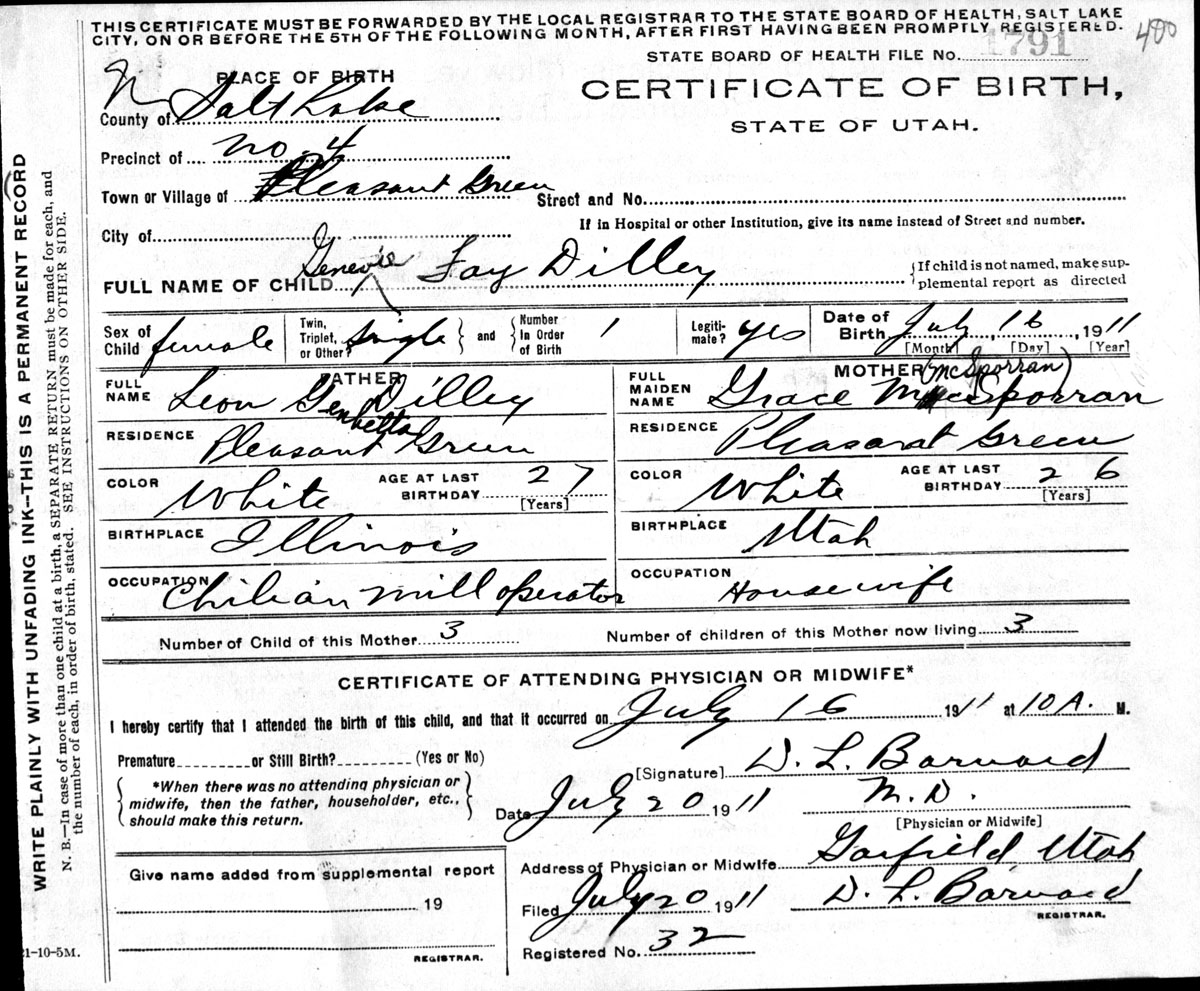 THIS CERTIFICATE MUST BE FORWARDED BY THE LOCAL REGISTRAR TO THE STATE BOARD OF HEALTH, SALT LAKE
CITY, ON OR BEFORE THE 5TH OF THE FOLLOWING MONTH, AFTER FIRST HAVING BEEN PROMPTLY REGISTERED.
400
STATE BOARD OF HEALTH FILE No. 1791
PLACE OF BIRTH
CERTIFICATE OF BIRTH,
STATE OF UTAH.
County of Salt Lake
Precinct of No. 4
Town or Village of Pleasant Green
Street and No.
If in Hospital or other Institution, give its name instead of Street and number.
City of
FULL NAME OF CHILD Genevie Fay Dilley
If child is not named, make sup-
plemental report as directed
Sex of Child female
Twin, Triplet, or Other? Single and Number In Order of Birth 1
Legiti-mate? yes
Date of Birth July 16, 1911
[Month] [Day] [Year]
FATHER
FULL NAME Leon Genbetta Dilley
RESIDENCE Pleasant Green
COLOR White AGE AT LAST BIRTHDAY 27
[Years]
BIRTHPLACE Illinois
OCCUPATION Chilian mill operator
MOTHER (McSporran)
FULL MAIDEN NAME Grace McSporran
RESIDENCE Pleasant Green
COLOR White AGE AT LAST BIRTHDAY 26
[Years]
BIRTHPLACE Utah
OCCUPATION Housewife
Number of Child of this Mother 3 Number of children of this Mother now living 3
CERTIFICATE OF ATTENDING PHYSICIAN OR MIDWIFE*
I hereby certify that I attended the birth of this child, and that it occurred on July 16 1911 at 10 A. M.
Premature or Still Birth? (Yes or No)
*When there was no attending physician or
midwife, then the father, householder, etc.,
should make this return.
[Signature] D. L. Barnard
Date July 20 1911 M.D.
[Physician or Midwife]
Give name added from supplemental report
19
REGISTRAR.
Address of Physician or Midwife Garfield, Utah
Filed July 20 1911 D. L. Barnard
REGISTRAR.
Registered No. 32
WRITE PLAINLY WITH UNFADING INK--THIS IS A PERMANENT RECORD
N. B.—In case of more than one child at a birth, a SEPARATE RETURN must be made for each, and
the number of each, in order of birth, stated. SEE INSTRUCTIONS ON OTHER SIDE.
1-10-5M.